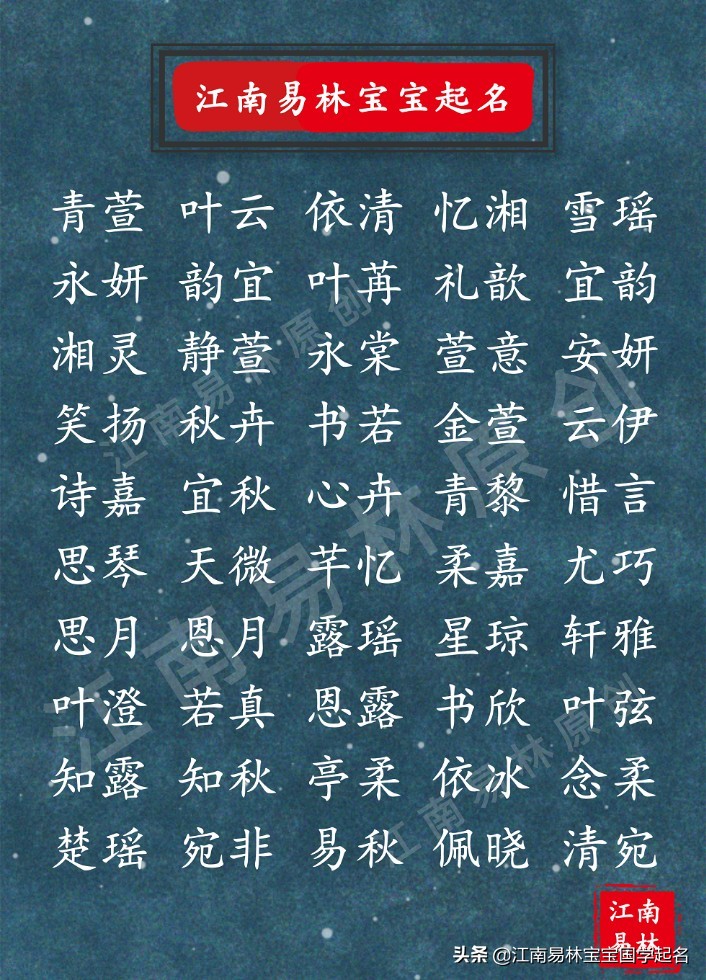 江南易林宝宝起名
青萱 叶云 依清 忆湘 雪瑶
永妍 韵宜 叶苒 礼歆 宜韵
湘灵 静萱 永棠 萱意 安妍
笑扬 秋卉 书若 金萱 云伊
诗嘉 宜秋 心卉 青黎 惜言
思琴 天微 芊忆 柔嘉 尤巧
思月 恩月 露瑶 星琼 轩雅
叶澄 若真 恩露 书欣 叶弦
知露 知秋 亭柔 依冰 念柔
楚瑶 宛非 易秋 佩晓 清宛
江南易林原创
江南易林原创
江南易林原创
江南
易林
头条 @江南易林宝宝国学起名